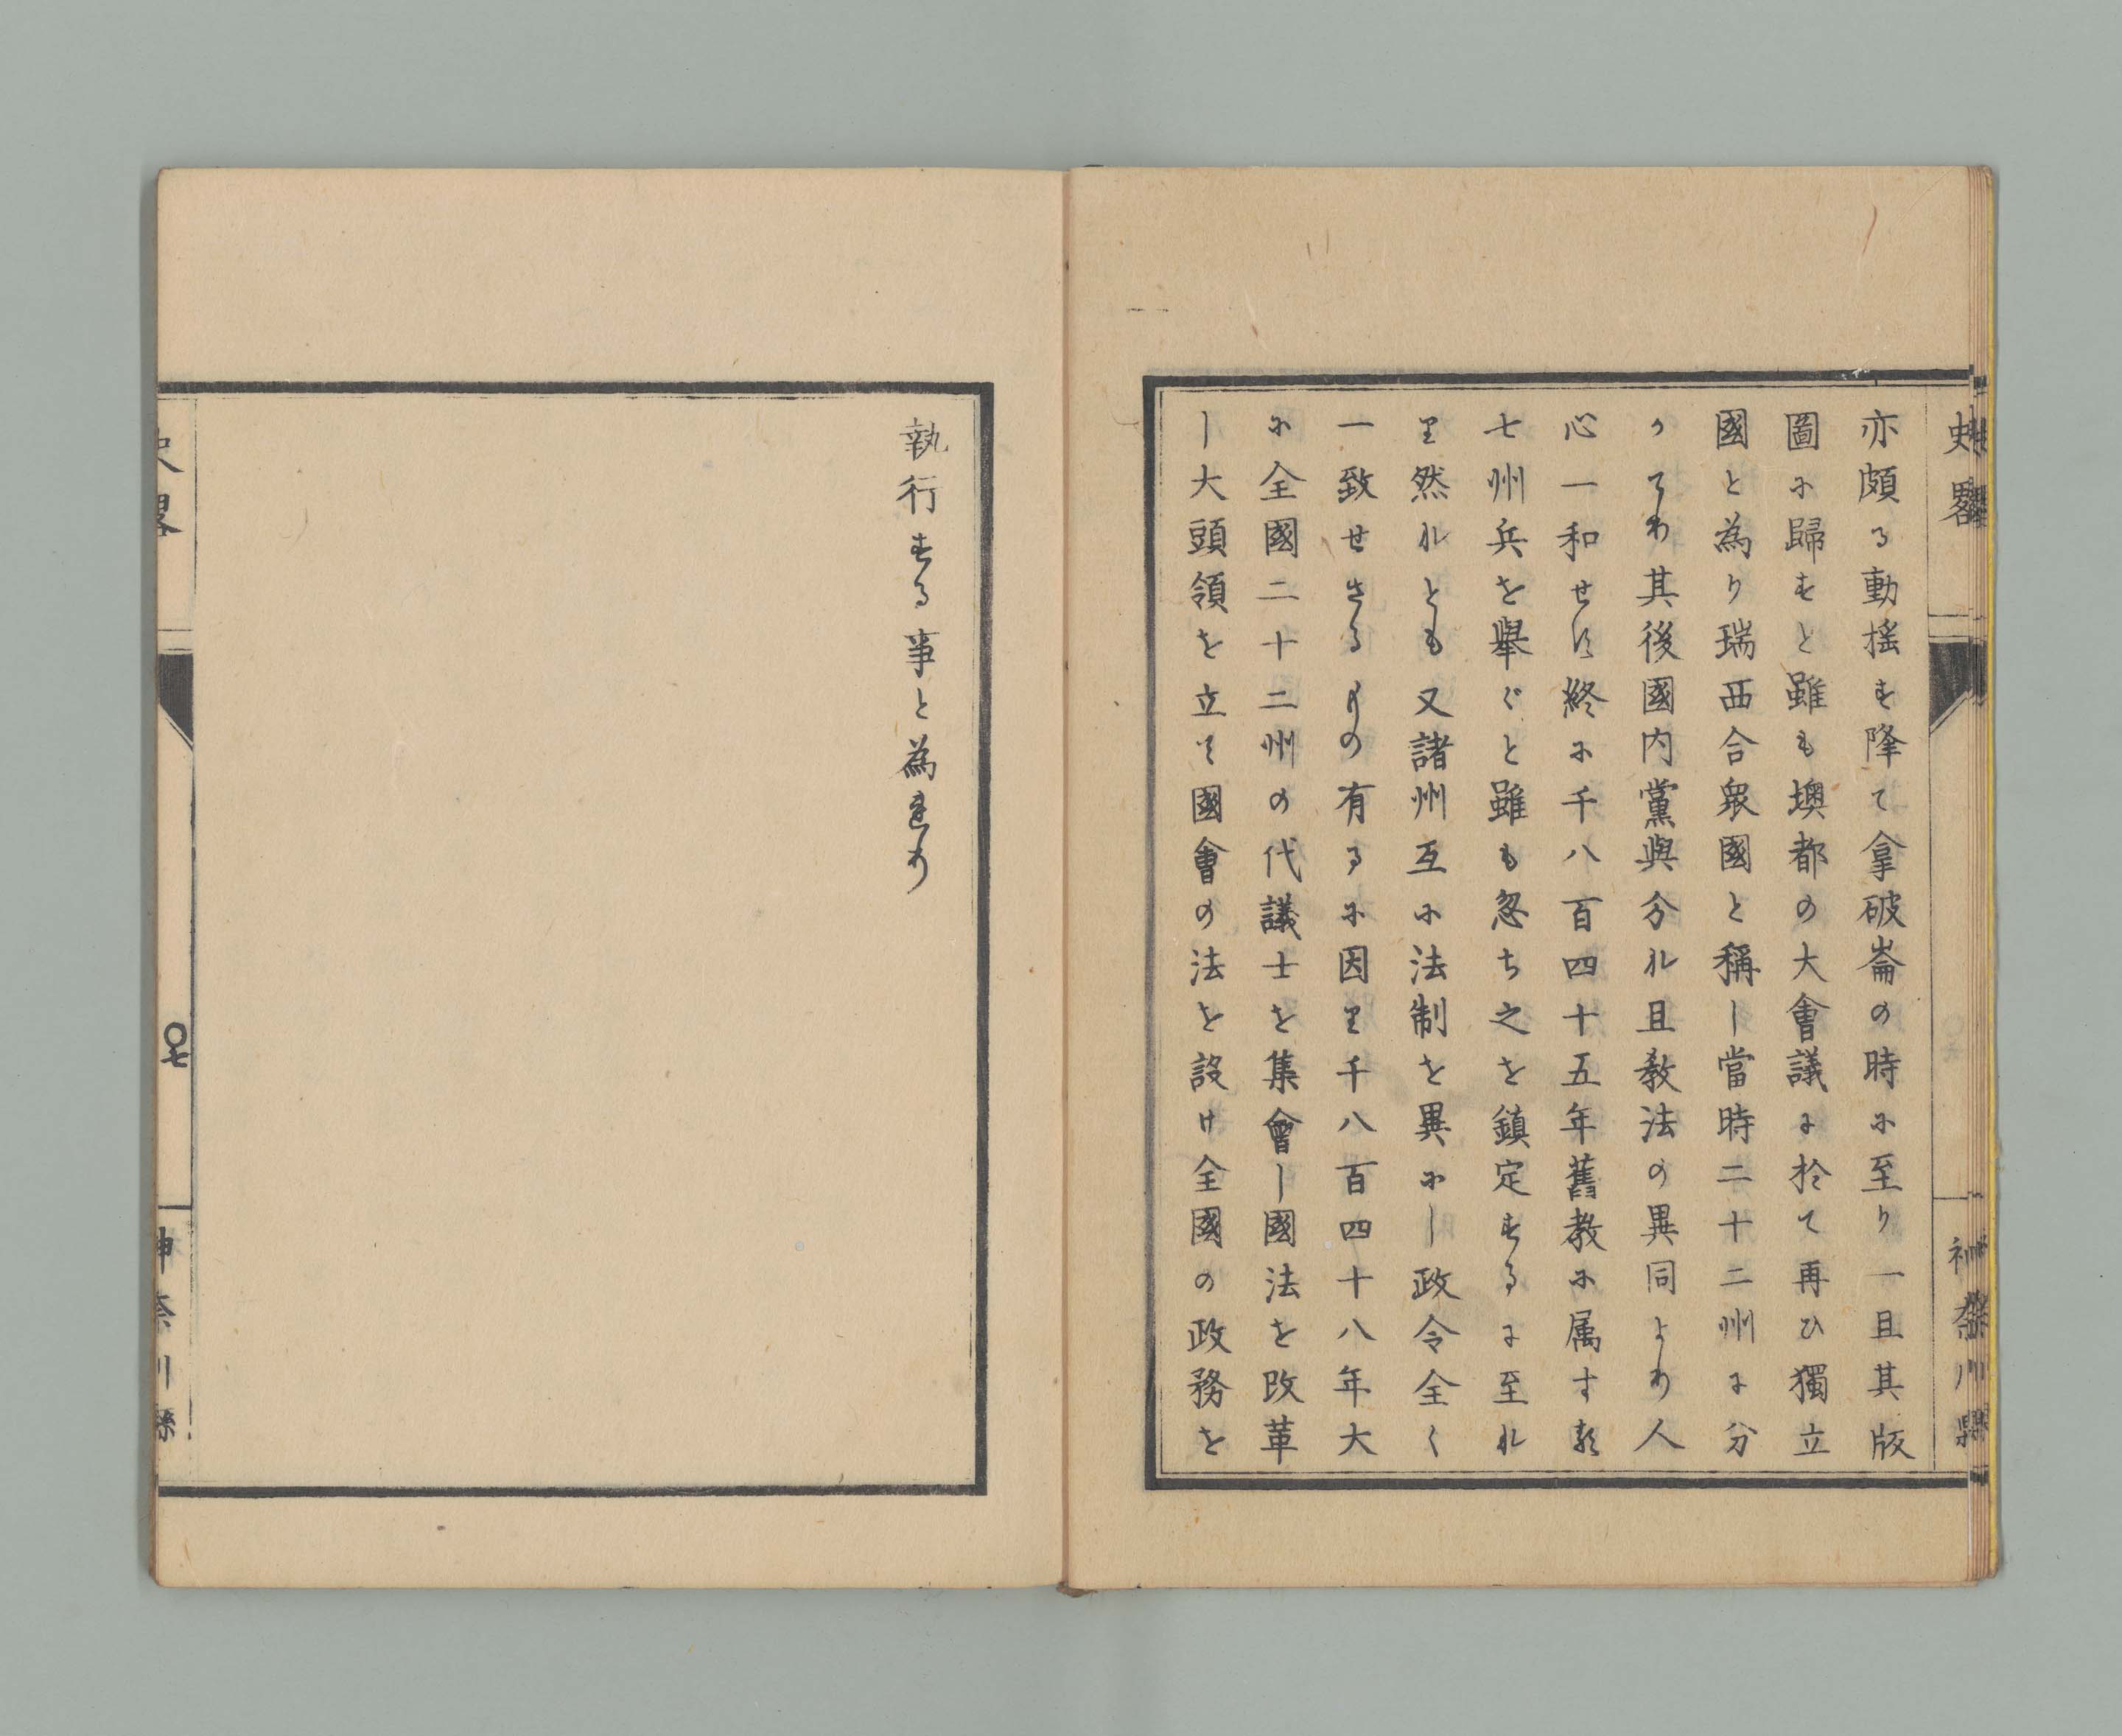 史畧
神奈川縣
亦頗る動揺す降て拿破崙の時に至り一旦其版
圖に歸すと雖も墺都の大會議に於て再ひ獨立
國と為り瑞西合衆國と稱し當時二十二州に分
かてり其後國内黨與分れ且教法の異同より人
心一和せす終に千八百四十五年舊教に属する
七州兵を舉ぐと雖も忽ち之を鎮定するに至れ
り然れとも又諸州互に法制を異にし政令全く
一致せさるもの有るに因り千八百四十八年大
に全國二十二州の代議士を集會し國法を改革
し大頭領を立て國會の法を設け全國の政務を
執行する事と為れり
史畧
〇七
神奈川縣